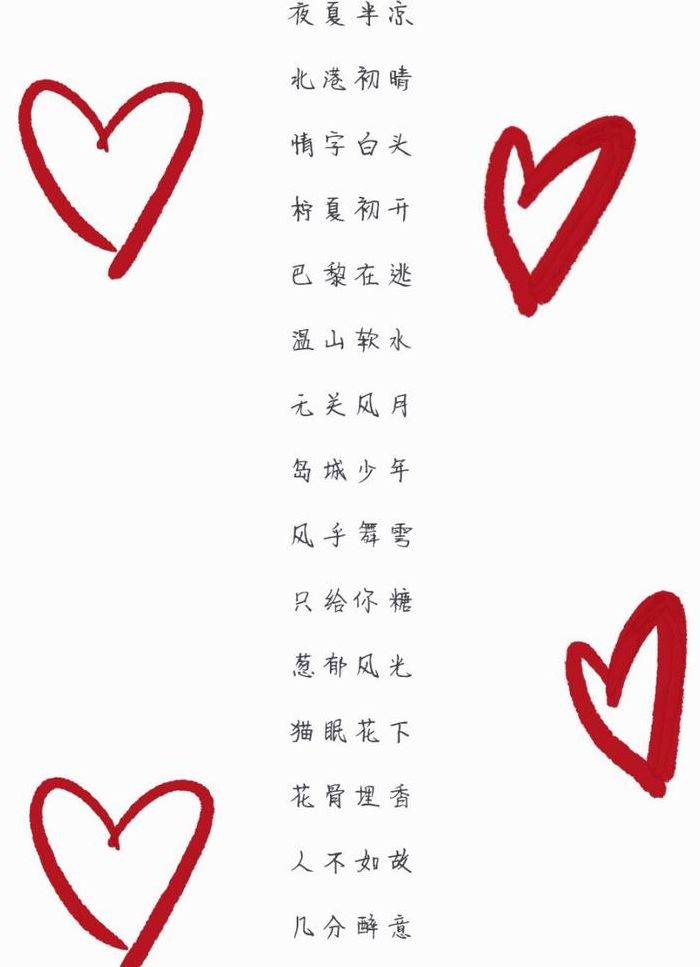 夜夏半凉
北港初晴
情字白头
柠夏初开
巴黎在逃
温山软水
无关风月
岛城少年
风乎舞雩
只给你糖
葱郁风光
猫眠花下
花骨埋香
人不如故
几分醉意